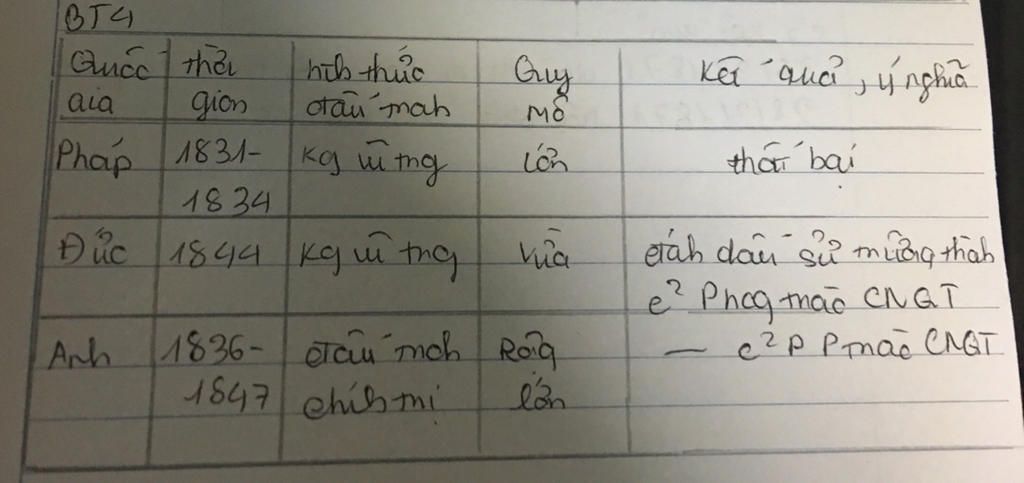 BT4
Quốc thời hình thức Quy Kết quả, ý nghĩa
gia gian đấu tranh mô
Pháp 1831- Kg vũ trang lớn thất bại
1834
Đức 1844 Kg vũ trang Vừa đánh dấu sử trưởng thành
c² Phog trào CNQT
Anh 1836- đấu tranh Rộng — c² P Ptrào CNQT
1847 chính trị lớn